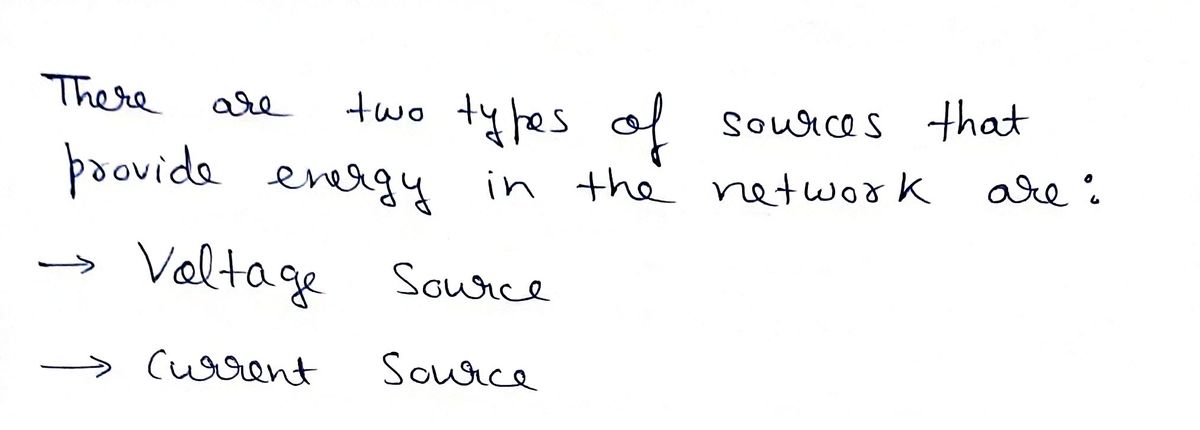 There are two types of sources that
provide energy in the network are:
→ Voltage Source
→ Current Source